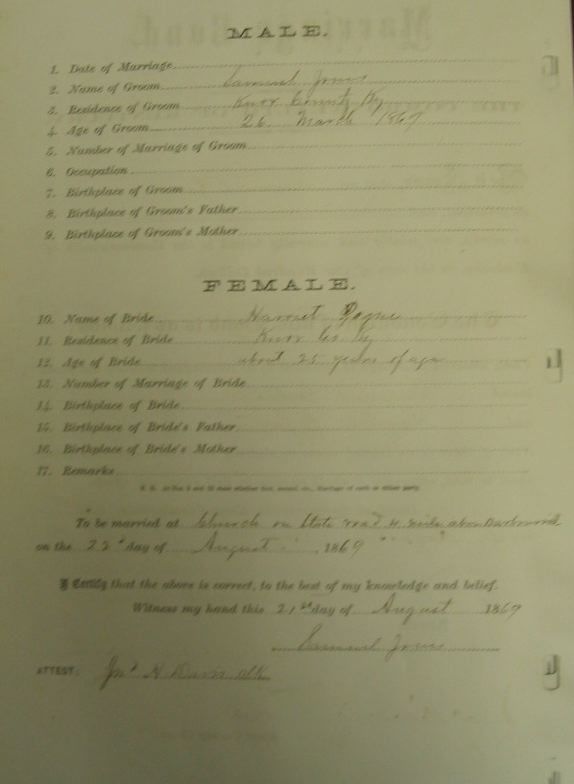 MALE.
1. Date of Marriage
2. Name of Groom Samuel Jones
3. Residence of Groom Knox County Ky
4. Age of Groom 26 March 1869
5. Number of Marriage of Groom
6. Occupation
7. Birthplace of Groom
8. Birthplace of Groom's Father
9. Birthplace of Groom's Mother
FEMALE.
10. Name of Bride Harriet Payne
11. Residence of Bride Knox Co Ky
12. Age of Bride about 25 years of age
13. Number of Marriage of Bride
14. Birthplace of Bride
15. Birthplace of Bride's Father
16. Birthplace of Bride's Mother
17. Remarks
To be married at Church on State road 4 miles above
on the 22d day of August, 1869
I Certify that the above is correct, to the best of my knowledge and belief.
Witness my hand this 21st day of August 1869
Samuel Jones
ATTEST: Jno H Davis